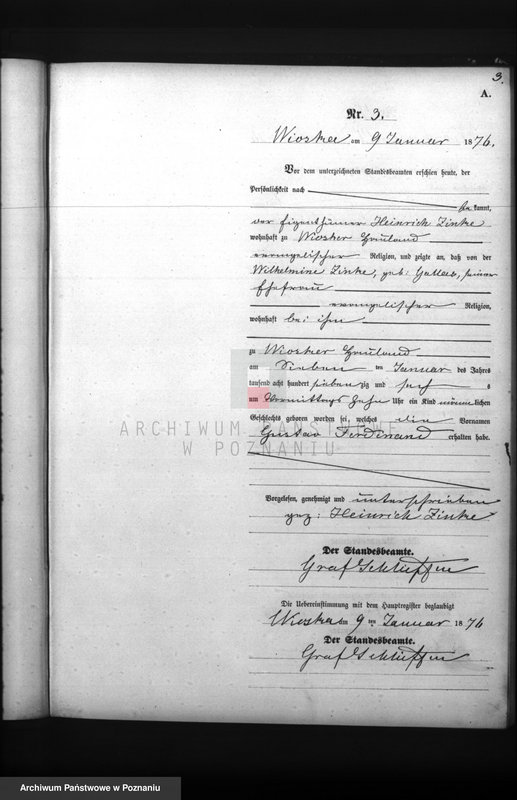 3.
A.
Nr. 3.
Wioska am 9 Januar 1876.
Vor dem unterzeichneten Standesbeamten erschien heute, der
Persönlichkeit nach
kannt,
der Eigenthümer Heinrich Zinke
wohnhaft zu Wiosker Hauland
evangelischer Religion, und zeigte an, daß von der
Wilhelmine Zinke, geb: seiner
Ehefrau
evangelischer Religion,
wohnhaft bei ihm
zu Wiosker Hauland
am Sieben ten Januar des Jahres
tausend acht hundert sieben zig und sech s
um Vormittags Zehn Uhr ein Kind männlichen
Geschlechts geboren worden sei, welches die Vornamen
Gustav Ferdinand erhalten habe.
ARCHIWUM PAŃSTWOWE
W POZNANIU
Vorgelesen, genehmigt und unterschrieben
gez: Heinrich Zinke
Der Standesbeamte.
Graf Schlieffen
Die Uebereinstimmung mit dem Hauptregister beglaubigt
Wioska am 9 ten Januar 1876
Der Standesbeamte.
Graf Schlieffen
Archiwum Państwowe w Poznaniu